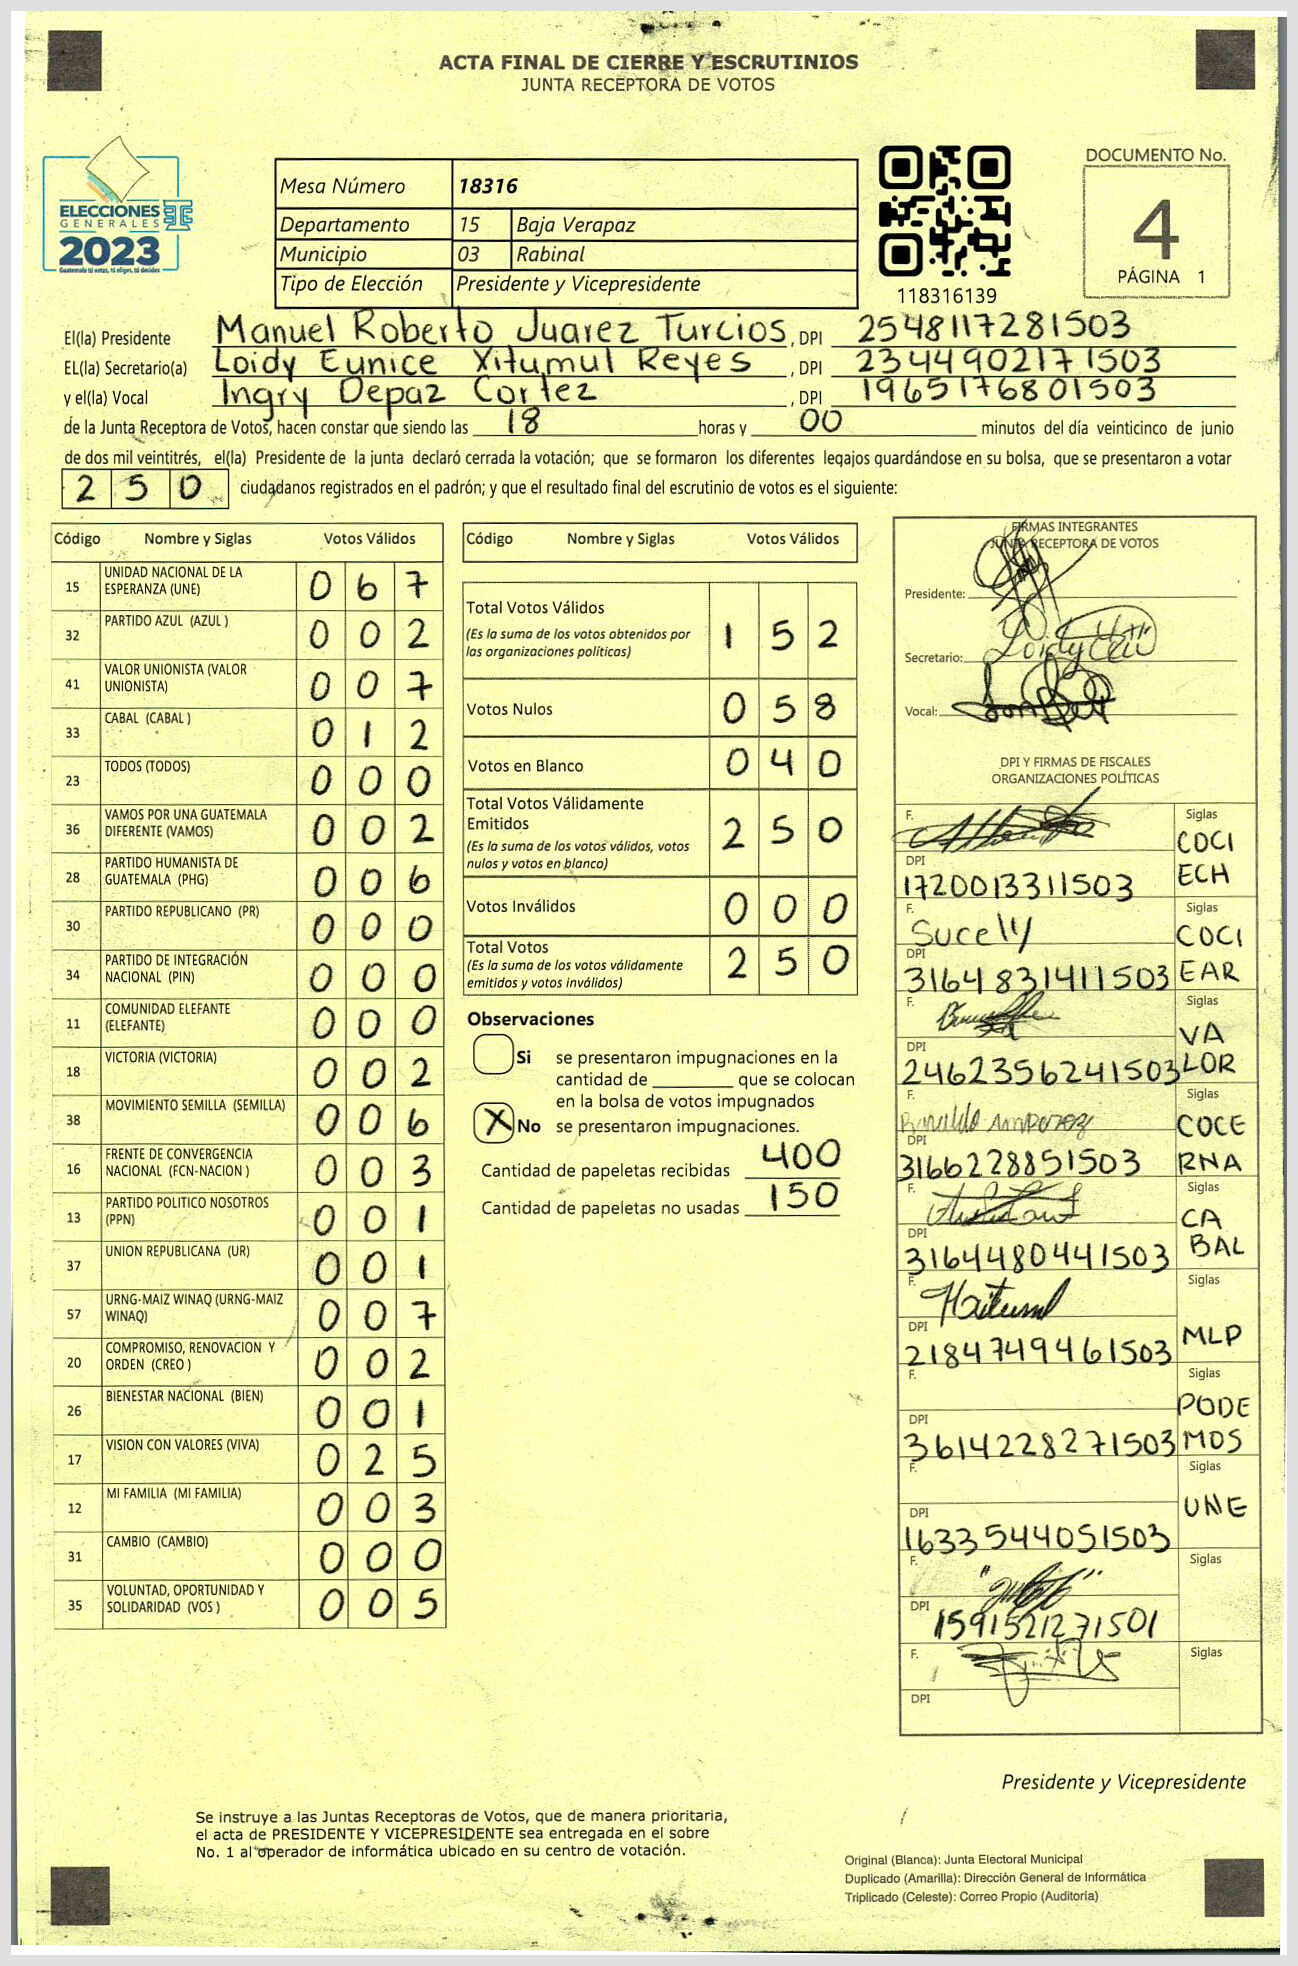 ACTA FINAL DE CIERRE Y ESCRUTINIOS
JUNTA RECEPTORA DE VOTOS
ELECCIONES
GENERALES
2023
Guatemala tú votas, tú eliges, tú decides
Mesa Número 18316
Departamento 15 Baja Verapaz
Municipio 03 Rabinal
Tipo de Elección Presidente y Vicepresidente
118316139
DOCUMENTO No.
4
PÁGINA 1
El(la) Presidente Manuel Roberto Juarez Turcios, DPI 2548117281503
EL(la) Secretario(a) Loidy Eunice Xitumul Reyes, DPI 2344902171503
y el(la) Vocal Ingry Depaz Cortez, DPI 1965176801503
de la Junta Receptora de Votos, hacen constar que siendo las 18 horas y 00 minutos del día veinticinco de junio
de dos mil veintitrés, el(la) Presidente de la junta declaró cerrada la votación; que se formaron los diferentes legajos guardándose en su bolsa, que se presentaron a votar
250 ciudadanos registrados en el padrón; y que el resultado final del escrutinio de votos es el siguiente:
Código Nombre y Siglas Votos Válidos
15 UNIDAD NACIONAL DE LA ESPERANZA (UNE) 067
32 PARTIDO AZUL (AZUL ) 002
41 VALOR UNIONISTA (VALOR UNIONISTA) 007
33 CABAL (CABAL ) 012
23 TODOS (TODOS) 000
36 VAMOS POR UNA GUATEMALA DIFERENTE (VAMOS) 002
28 PARTIDO HUMANISTA DE GUATEMALA (PHG) 006
30 PARTIDO REPUBLICANO (PR) 000
34 PARTIDO DE INTEGRACIÓN NACIONAL (PIN) 000
11 COMUNIDAD ELEFANTE (ELEFANTE) 000
18 VICTORIA (VICTORIA) 002
38 MOVIMIENTO SEMILLA (SEMILLA) 006
16 FRENTE DE CONVERGENCIA NACIONAL (FCN-NACION ) 003
13 PARTIDO POLITICO NOSOTROS (PPN) 001
37 UNION REPUBLICANA (UR) 001
57 URNG-MAIZ WINAQ (URNG-MAIZ WINAQ) 007
20 COMPROMISO, RENOVACION Y ORDEN (CREO ) 002
26 BIENESTAR NACIONAL (BIEN) 001
17 VISION CON VALORES (VIVA) 025
12 MI FAMILIA (MI FAMILIA) 003
31 CAMBIO (CAMBIO) 000
35 VOLUNTAD, OPORTUNIDAD Y SOLIDARIDAD (VOS ) 005
Código Nombre y Siglas Votos Válidos
Total Votos Válidos 152
(Es la suma de los votos obtenidos por
las organizaciones políticas)
Votos Nulos 058
Votos en Blanco 040
Total Votos Válidamente
Emitidos 250
(Es la suma de los votos válidos, votos
nulos y votos en blanco)
Votos Inválidos 000
Total Votos 250
(Es la suma de los votos válidamente
emitidos y votos inválidos)
Observaciones
Si se presentaron impugnaciones en la
cantidad de ________ que se colocan
en la bolsa de votos impugnados
X No se presentaron impugnaciones.
Cantidad de papeletas recibidas 400
Cantidad de papeletas no usadas 150
FIRMAS INTEGRANTES
JUNTA RECEPTORA DE VOTOS
Presidente:
Secretario:
Vocal:
DPI Y FIRMAS DE FISCALES
ORGANIZACIONES POLÍTICAS
F. Siglas COCI ECH
DPI 1720013311503
F. Sucelly Siglas COCI EAR
DPI 3164831411503
F. Siglas VA LOR
DPI 2462356241503
F. Siglas COCE RNA
DPI 3166228851503
F. Siglas CA BAL
DPI 3164480441503
F. Siglas MLP
DPI 2184749461503
F. Siglas PODE MOS
DPI 3614228271503
F. Siglas UNE
DPI 1633544051503
F. Siglas
DPI 1591521271501
F. Siglas
DPI
Presidente y Vicepresidente
Se instruye a las Juntas Receptoras de Votos, que de manera prioritaria,
el acta de PRESIDENTE Y VICEPRESIDENTE sea entregada en el sobre
No. 1 al operador de informática ubicado en su centro de votación.
Original (Blanca): Junta Electoral Municipal
Duplicado (Amarilla): Dirección General de Informática
Triplicado (Celeste): Correo Propio (Auditoría)